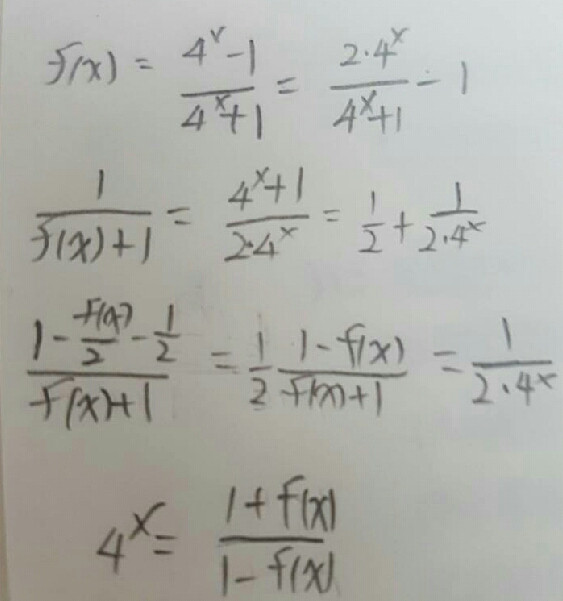 f(x) = \frac{4^x-1}{4^x+1} = \frac{2·4^x}{4^x+1} - 1
\frac{1}{f(x)+1} = \frac{4^x+1}{2·4^x} = \frac{1}{2} + \frac{1}{2·4^x}
\frac{1-\frac{f(x)}{2}-\frac{1}{2}}{f(x)+1} = \frac{1}{2} \frac{1-f(x)}{f(x)+1} = \frac{1}{2·4^x}
4^x = \frac{1+f(x)}{1-f(x)}